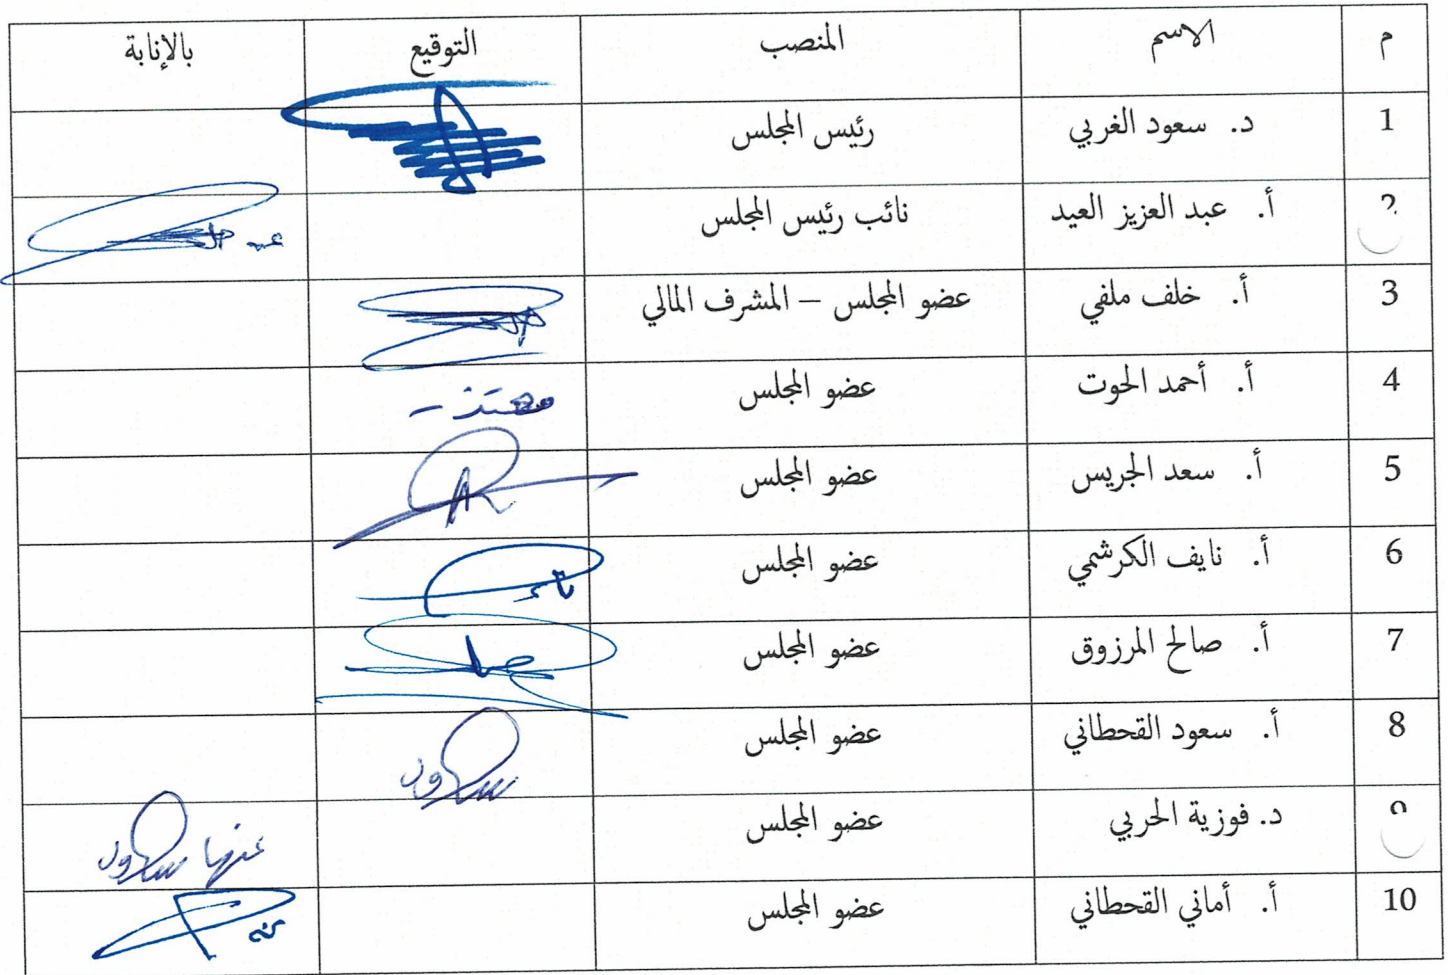 م الاسم المنصب التوقيع بالإنابة
1 د. سعود الغربي رئيس المجلس
2 أ. عبد العزيز العيد نائب رئيس المجلس
3 أ. خلف ملفي عضو المجلس – المشرف المالي
4 أ. أحمد الحوت عضو المجلس معتذر
5 أ. سعد الجريس عضو المجلس
6 أ. نايف الكرشمي عضو المجلس
7 أ. صالح المرزوق عضو المجلس
8 أ. سعود القحطاني عضو المجلس سعود
9 د. فوزية الحربي عضو المجلس عنها سعود
10 أ. أماني القحطاني عضو المجلس